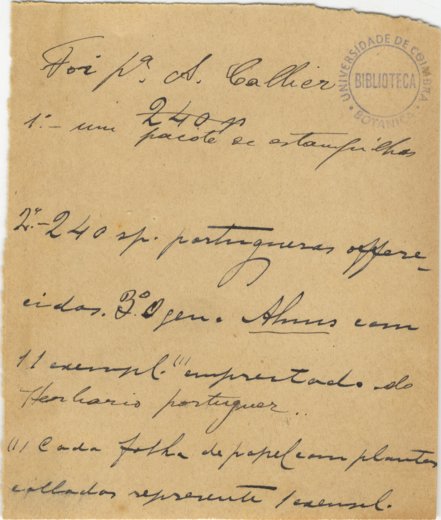 Foi pª A. Callier
UNIVERSIDADE DE COIMBRA
BIBLIOTECA
BOTANICA
240 sp
1º - um pacote de estampilhas
2º - 240 sp. portuguesas offere-
cidas. 3º O gen. Alnus com
11 exempl.(1) emprestado do
Herbario portuguez..
(1) Cada folha de papel com plantas
colladas represente 1 exempl.